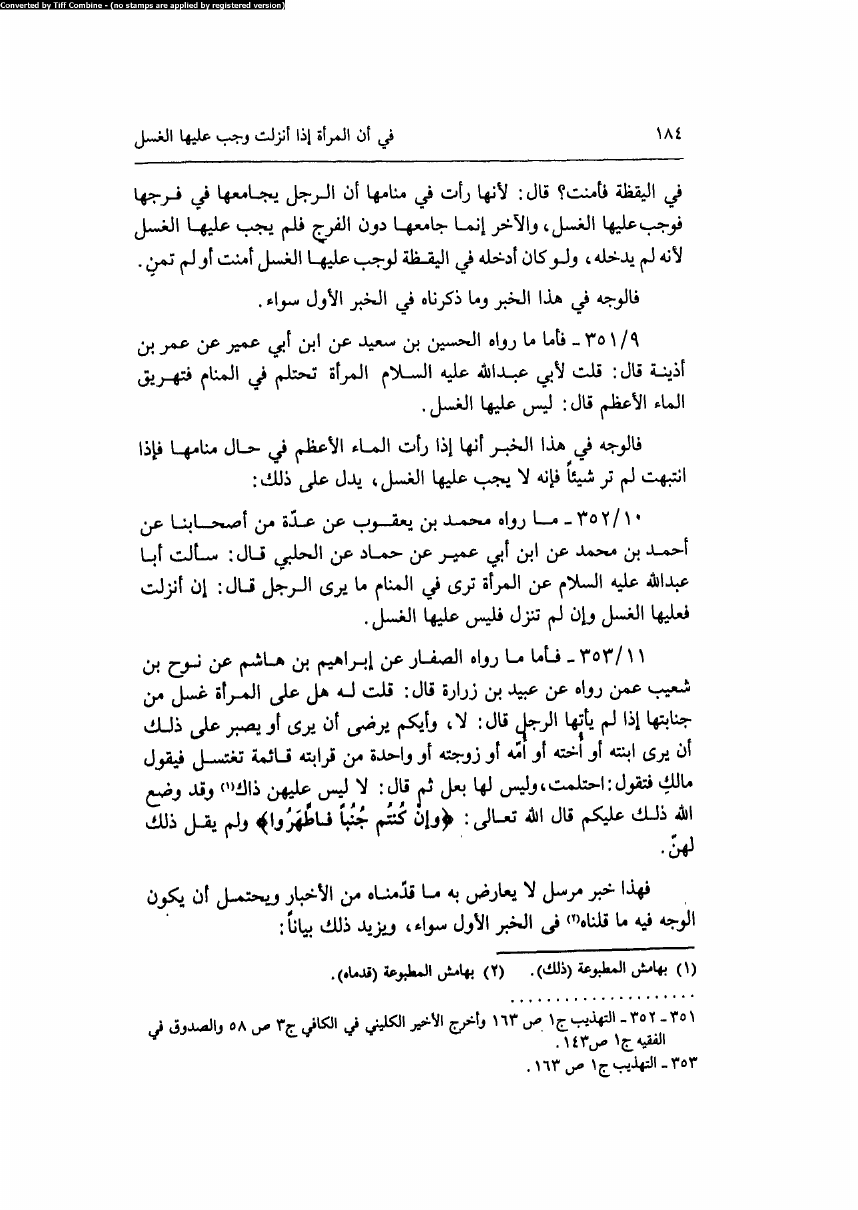 Converted by Tiff Combine - (no stamps are applied by registered version)
١٨٤ في أن المرأة إذا أنزلت وجب عليها الغسل
في اليقظة فأمنت؟ قال: لأنها رأت في منامها أن الـرجل يجـامعها في فـرجها
فوجب عليها الغسل، والآخر إنمـا جامعهـا دون الفرج فلم يجب عليهـا الغسل
لأنه لم يدخله، ولـو كان أدخله في اليقـظة لوجب عليهـا الغسل أمنت أو لم تمنِ.
فالوجه في هذا الخبر وما ذكرناه في الخبر الأول سواء.
٣٥١/٩ ـ فأما ما رواه الحسين بن سعيد عن ابن أبي عمير عن عمر بن
أذينـة قال: قلت لأبي عبـدالله عليه السـلام المرأة تحتلم في المنام فتهـريق
الماء الأعظم قال: ليس عليها الغسل.
فالوجه في هذا الخبـر أنها إذا رأت المـاء الأعظم في حـال منامهـا فإذا
انتبهت لم تر شيئاً فإنه لا يجب عليها الغسل، يدل على ذلك:
٣٥٢/١٠ ـ مـا رواه محمـد بن يعقـوب عن عـدّة من أصحـابنـا عن
أحمـد بن محمد عن ابن أبي عميـر عن حمـاد عن الحلبي قـال: سـألت أبـا
عبدالله عليه السلام عن المرأة ترى في المنام ما يرى الـرجل قـال: إن أنزلت
فعليها الغسل وإن لم تنزل فليس عليها الغسل.
٣٥٣/١١ ـ فـأما مـا رواه الصفـار عن إبـراهيم بن هـاشم عن نـوح بن
شعيب عمن رواه عن عبيد بن زرارة قال: قلت لـه هل على المـرأة غسل من
جنابتها إذا لم يأتها الرجل قال: لا، وأيكم يرضى أن يرى أو يصبر على ذلـك
أن يرى ابنته أو أُخته أو أُمّه أو زوجته أو واحدة من قرابته قـائمة تغتسـل فيقول
مالكِ فتقول: احتلمت، وليس لها بعل ثم قال: لا ليس عليهن ذاك(١) وقد وضع
الله ذلـك عليكم قال الله تعـالى: ﴿وإنْ كُنتُم جُنُباً فـاطَّهَرُوا﴾ ولم يقـل ذلك
لهنّ.
فهذا خبر مرسل لا يعارض به مـا قدّمنـاه من الأخبار ويحتمـل أن يكون
الوجه فيه ما قلناه(٢) فى الخبر الأول سواء، ويزيد ذلك بياناً:
(١) بهامش المطبوعة (ذلك). (٢) بهامش المطبوعة (قدماه).
٣٥١ ـ ٣٥٢ ـ التهذيب ج١ ص ١٦٣ وأخرج الأخير الكليني في الكافي ج٣ ص ٥٨ والصدوق في
الفقيه ج١ ص١٤٣.
٣٥٣ ـ التهذيب ج١ ص ١٦٣.